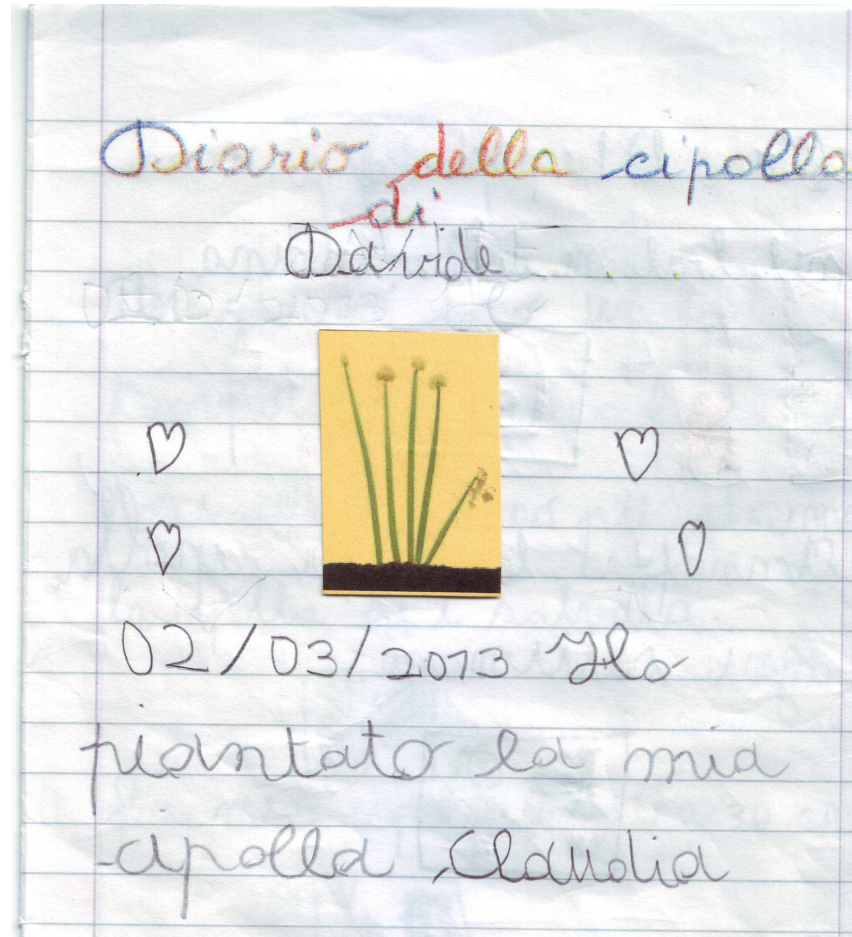 Diario della cipolla
di
Davide
02/03/2013 Ho
piantato la mia
cipolla Claudia